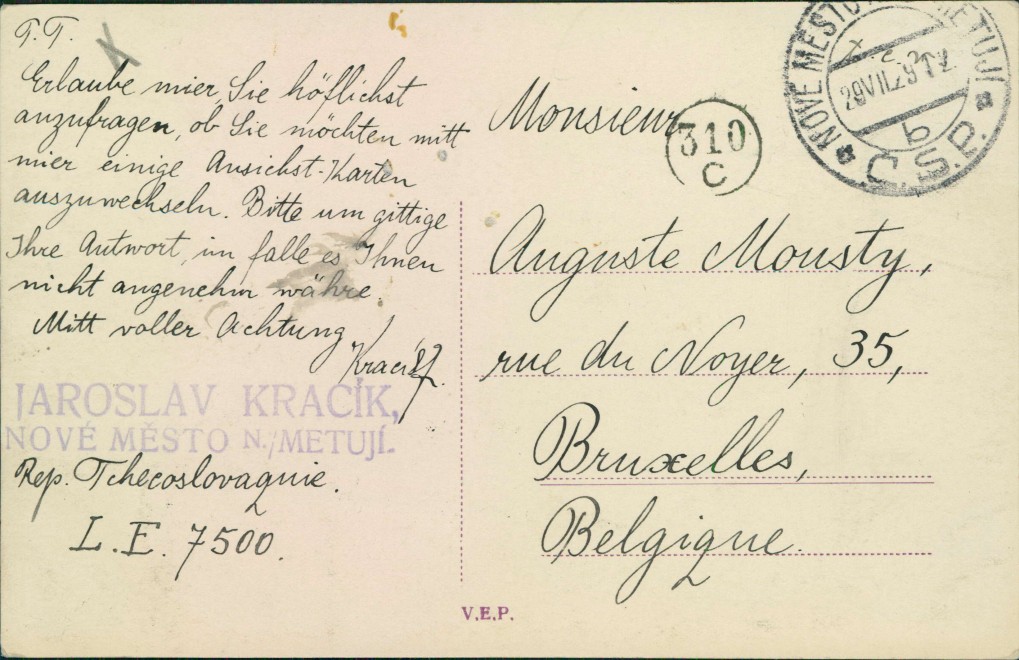 T.T.
Erlaube mier Sie höflichst
anzufragen, ob Sie möchten mitt
mier einige Ansichst-Karten
auszuwechseln. Bitte um gittige
Ihre Antwort, im falle es Ihnen
nicht angenehm währe.
Mitt voller Achtung
Kracík
JAROSLAV KRACÍK,
NOVÉ MĚSTO N./METUJÍ.
Rep. Tchecoslovaquie.
L.E. 7500.
Monsieur
Auguste Mousty,
rue du Noyer, 35,
Bruxelles,
Belgique.
310
C
NOVÉ MĚSTO METUJÍ
29 VII
b
Č.S.P.
V.E.P.